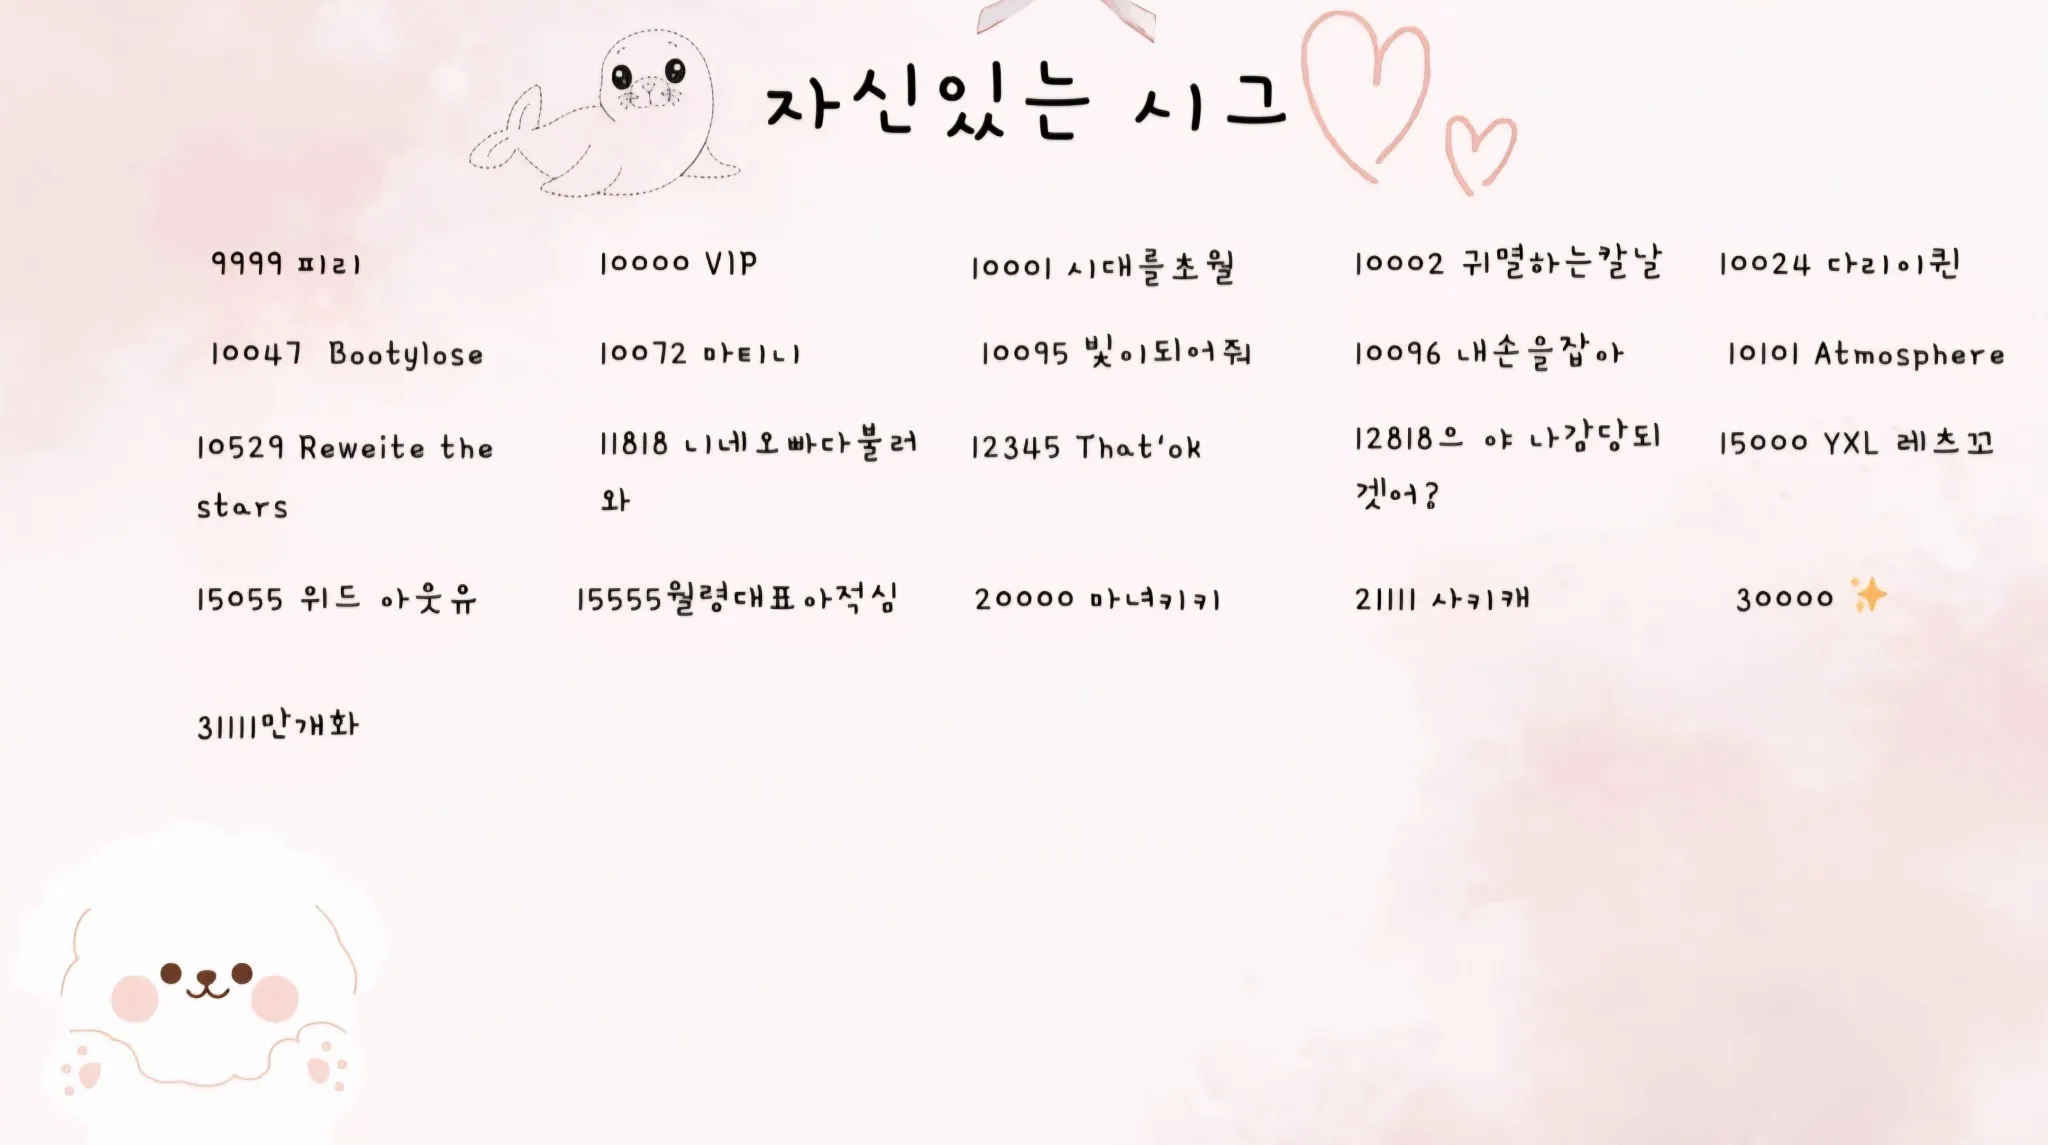 자신있는 시그
9999 피리
10000 VIP
10001 시대를초월
10002 귀멸하는칼날
10024 다리이퀸
10047 Bootylose
10072 마티니
10095 빛이되어줘
10096 내손을잡아
10101 Atmosphere
10529 Reweite the
stars
11818 니네오빠다불러
와
12345 That'ok
12818으 야 나감당되
겟어?
15000 YXL 레츠꼬
15055 위드 아웃유
15555월령대표아적심
20000 마녀키키
21111 사키캐
30000 ✨
31111만개화